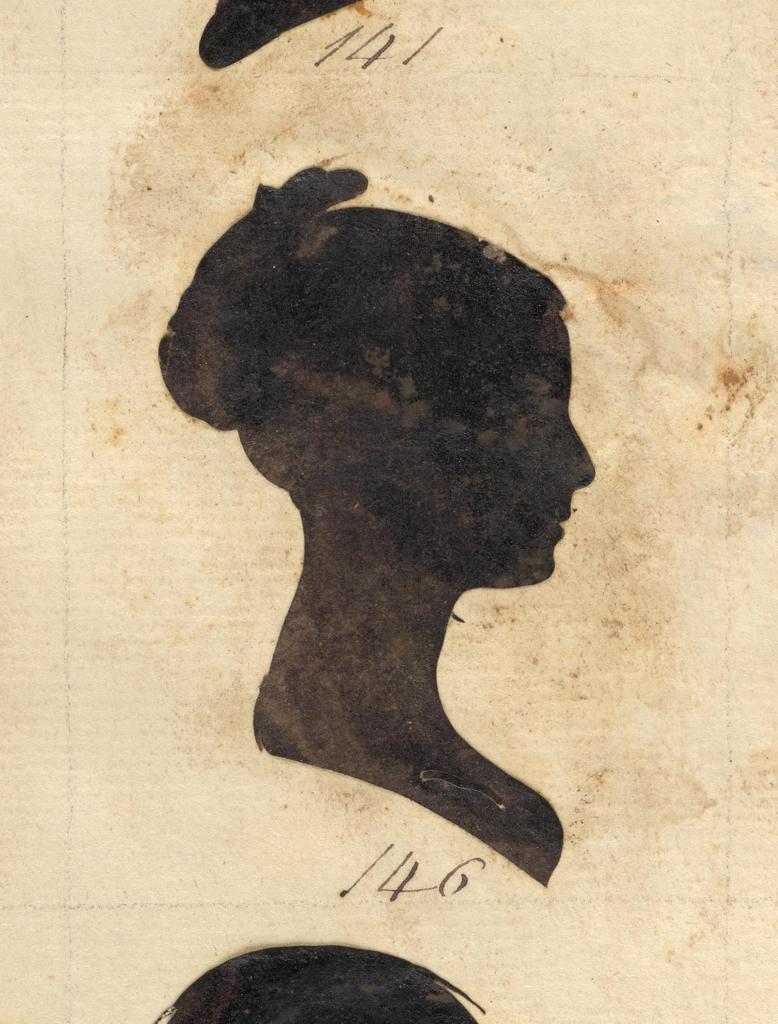 141
146